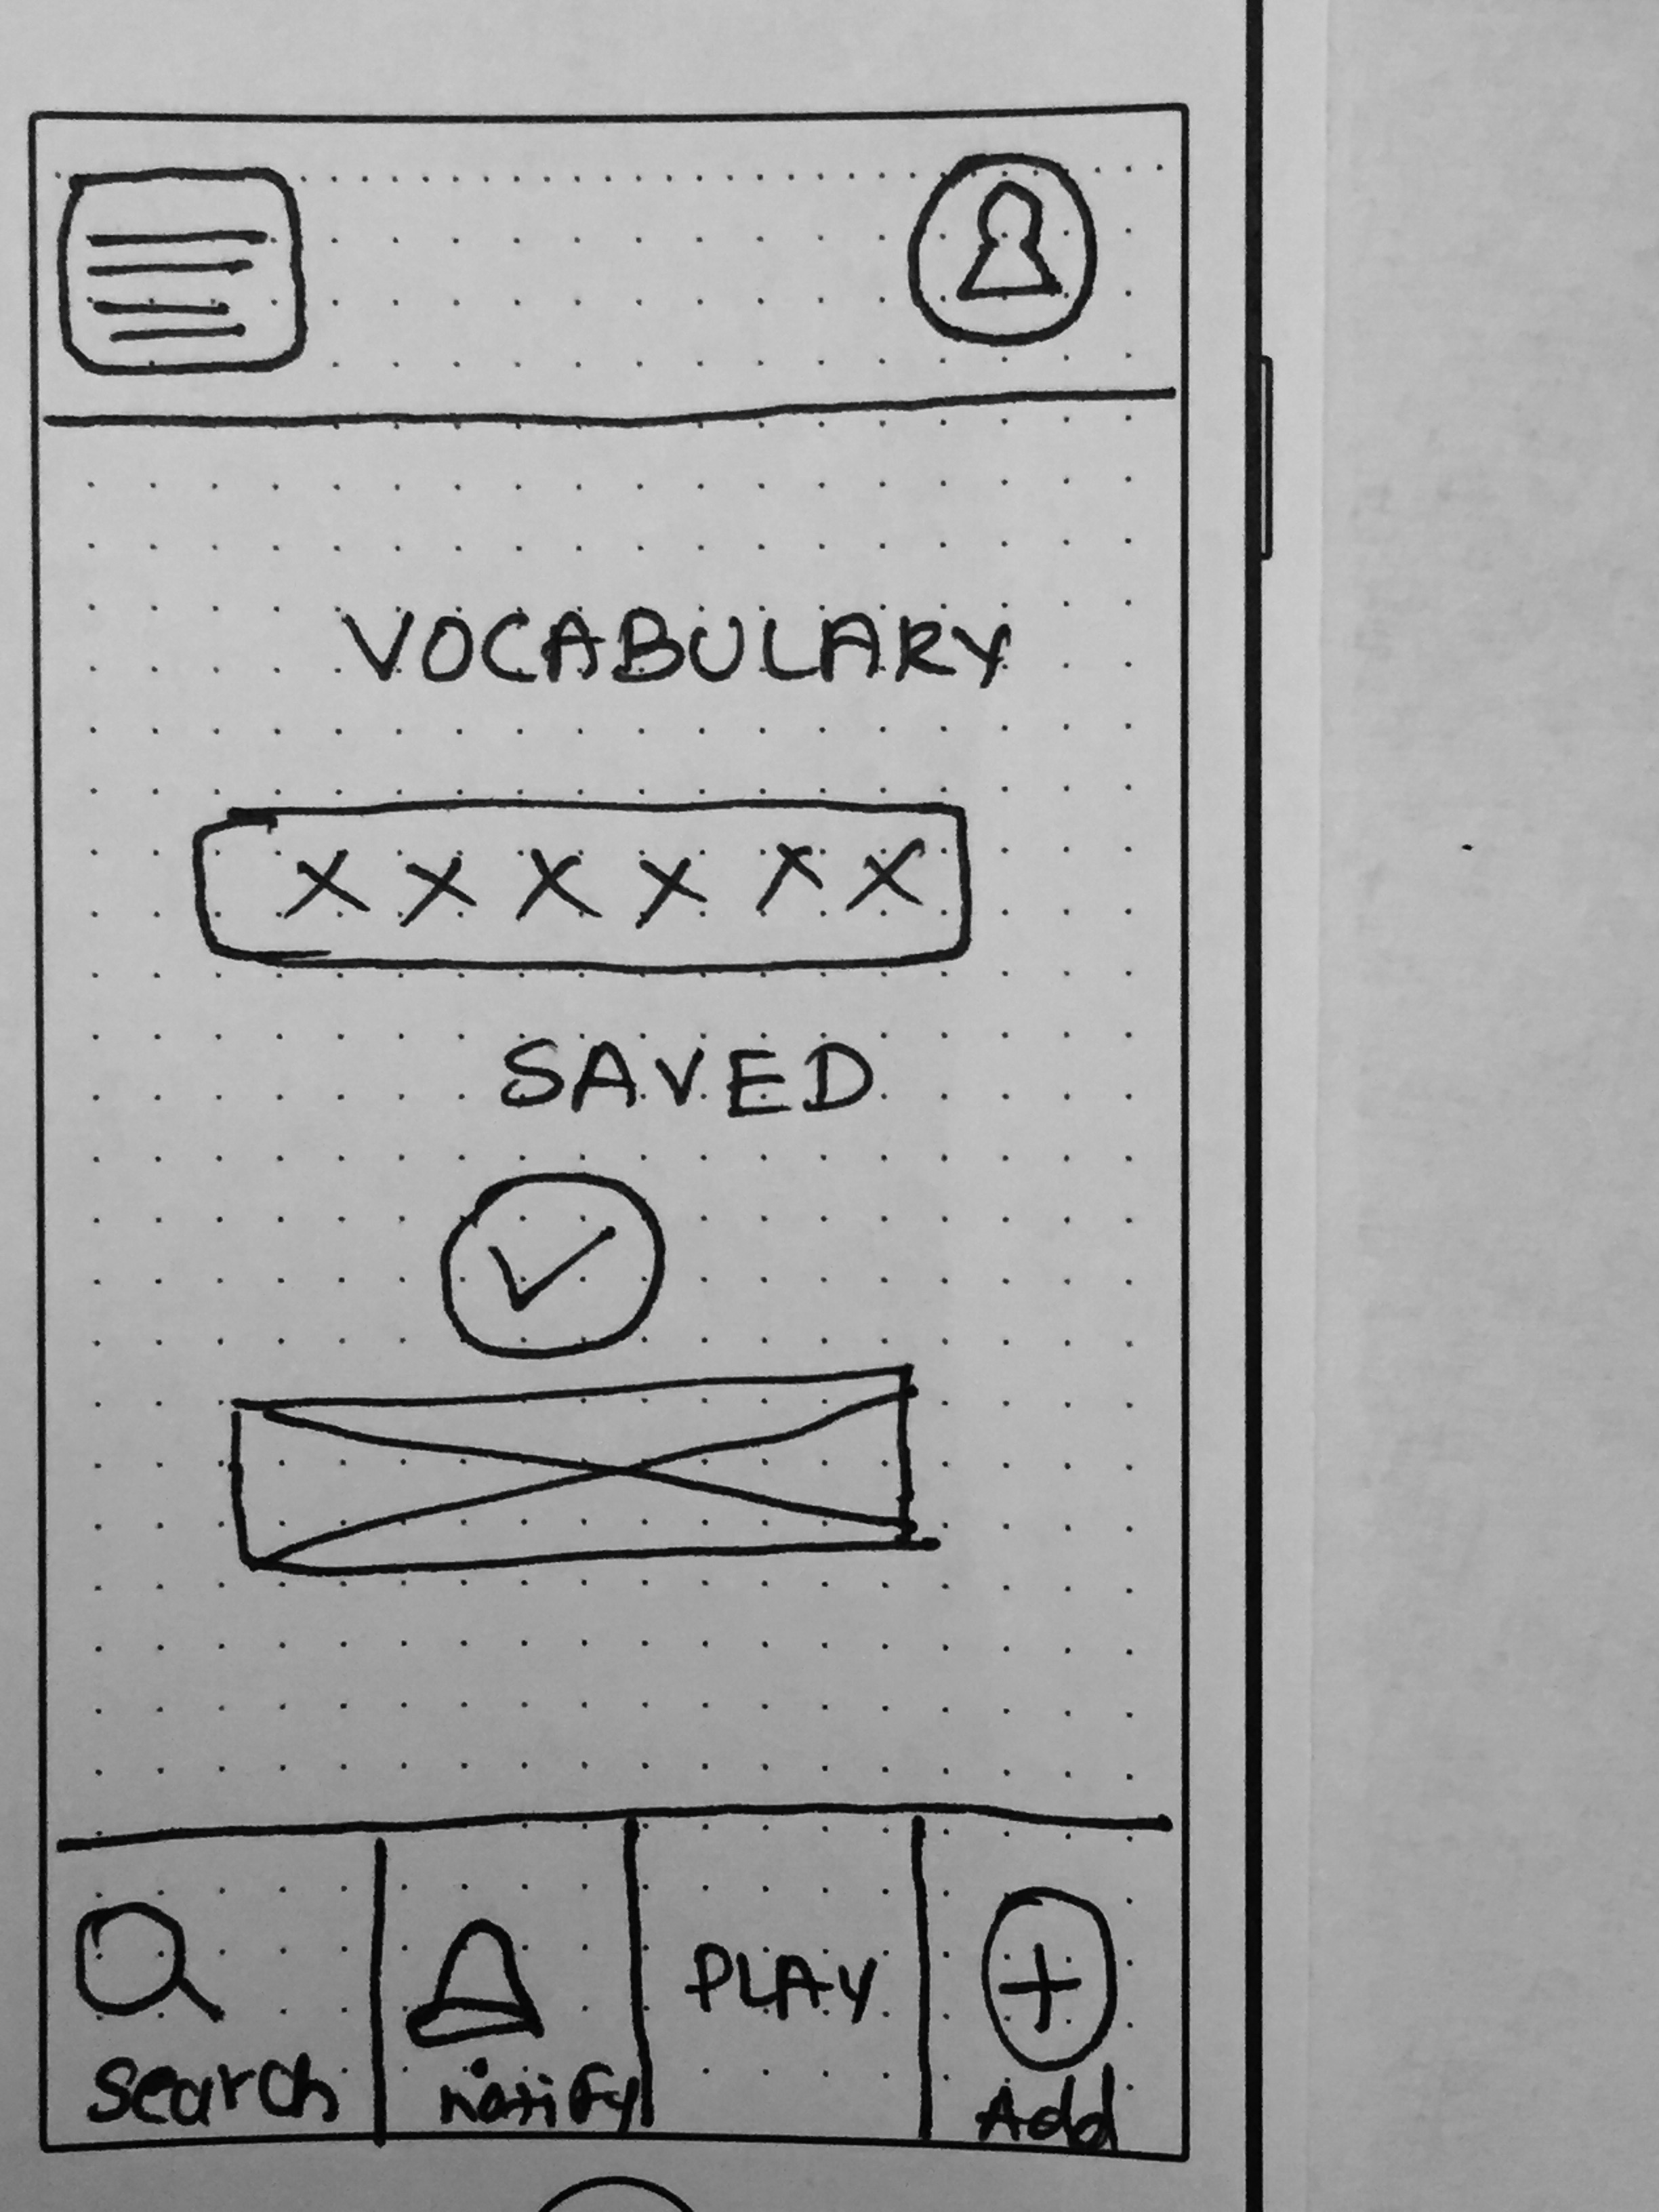 VOCABULARY
X X X X X X
SAVED
PLAY
Search
notify
Add